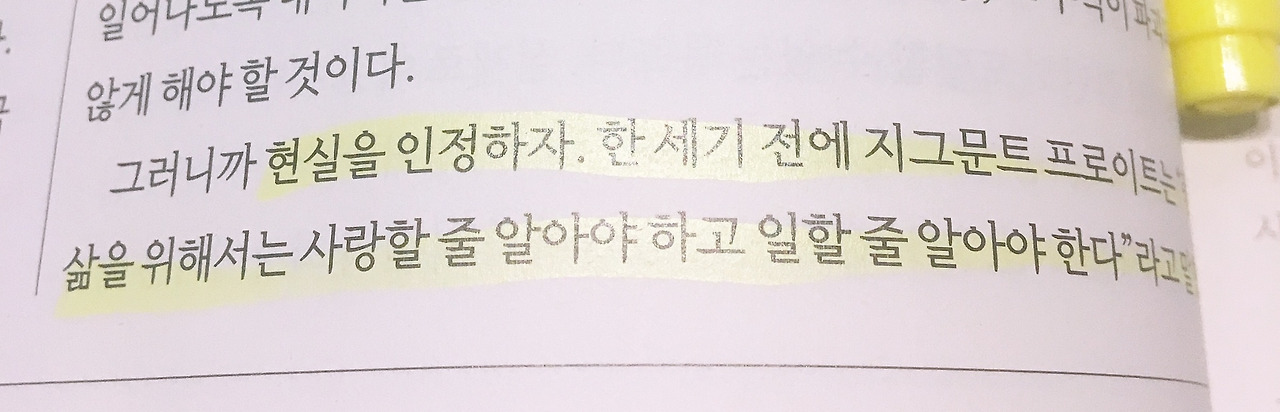 일어나도록
않게 해야 할 것이다.
그러니까 현실을 인정하자. 한 세기 전에 지그문트 프로이트는
삶을 위해서는 사랑할 줄 알아야 하고 일할 줄 알아야 한다”라고